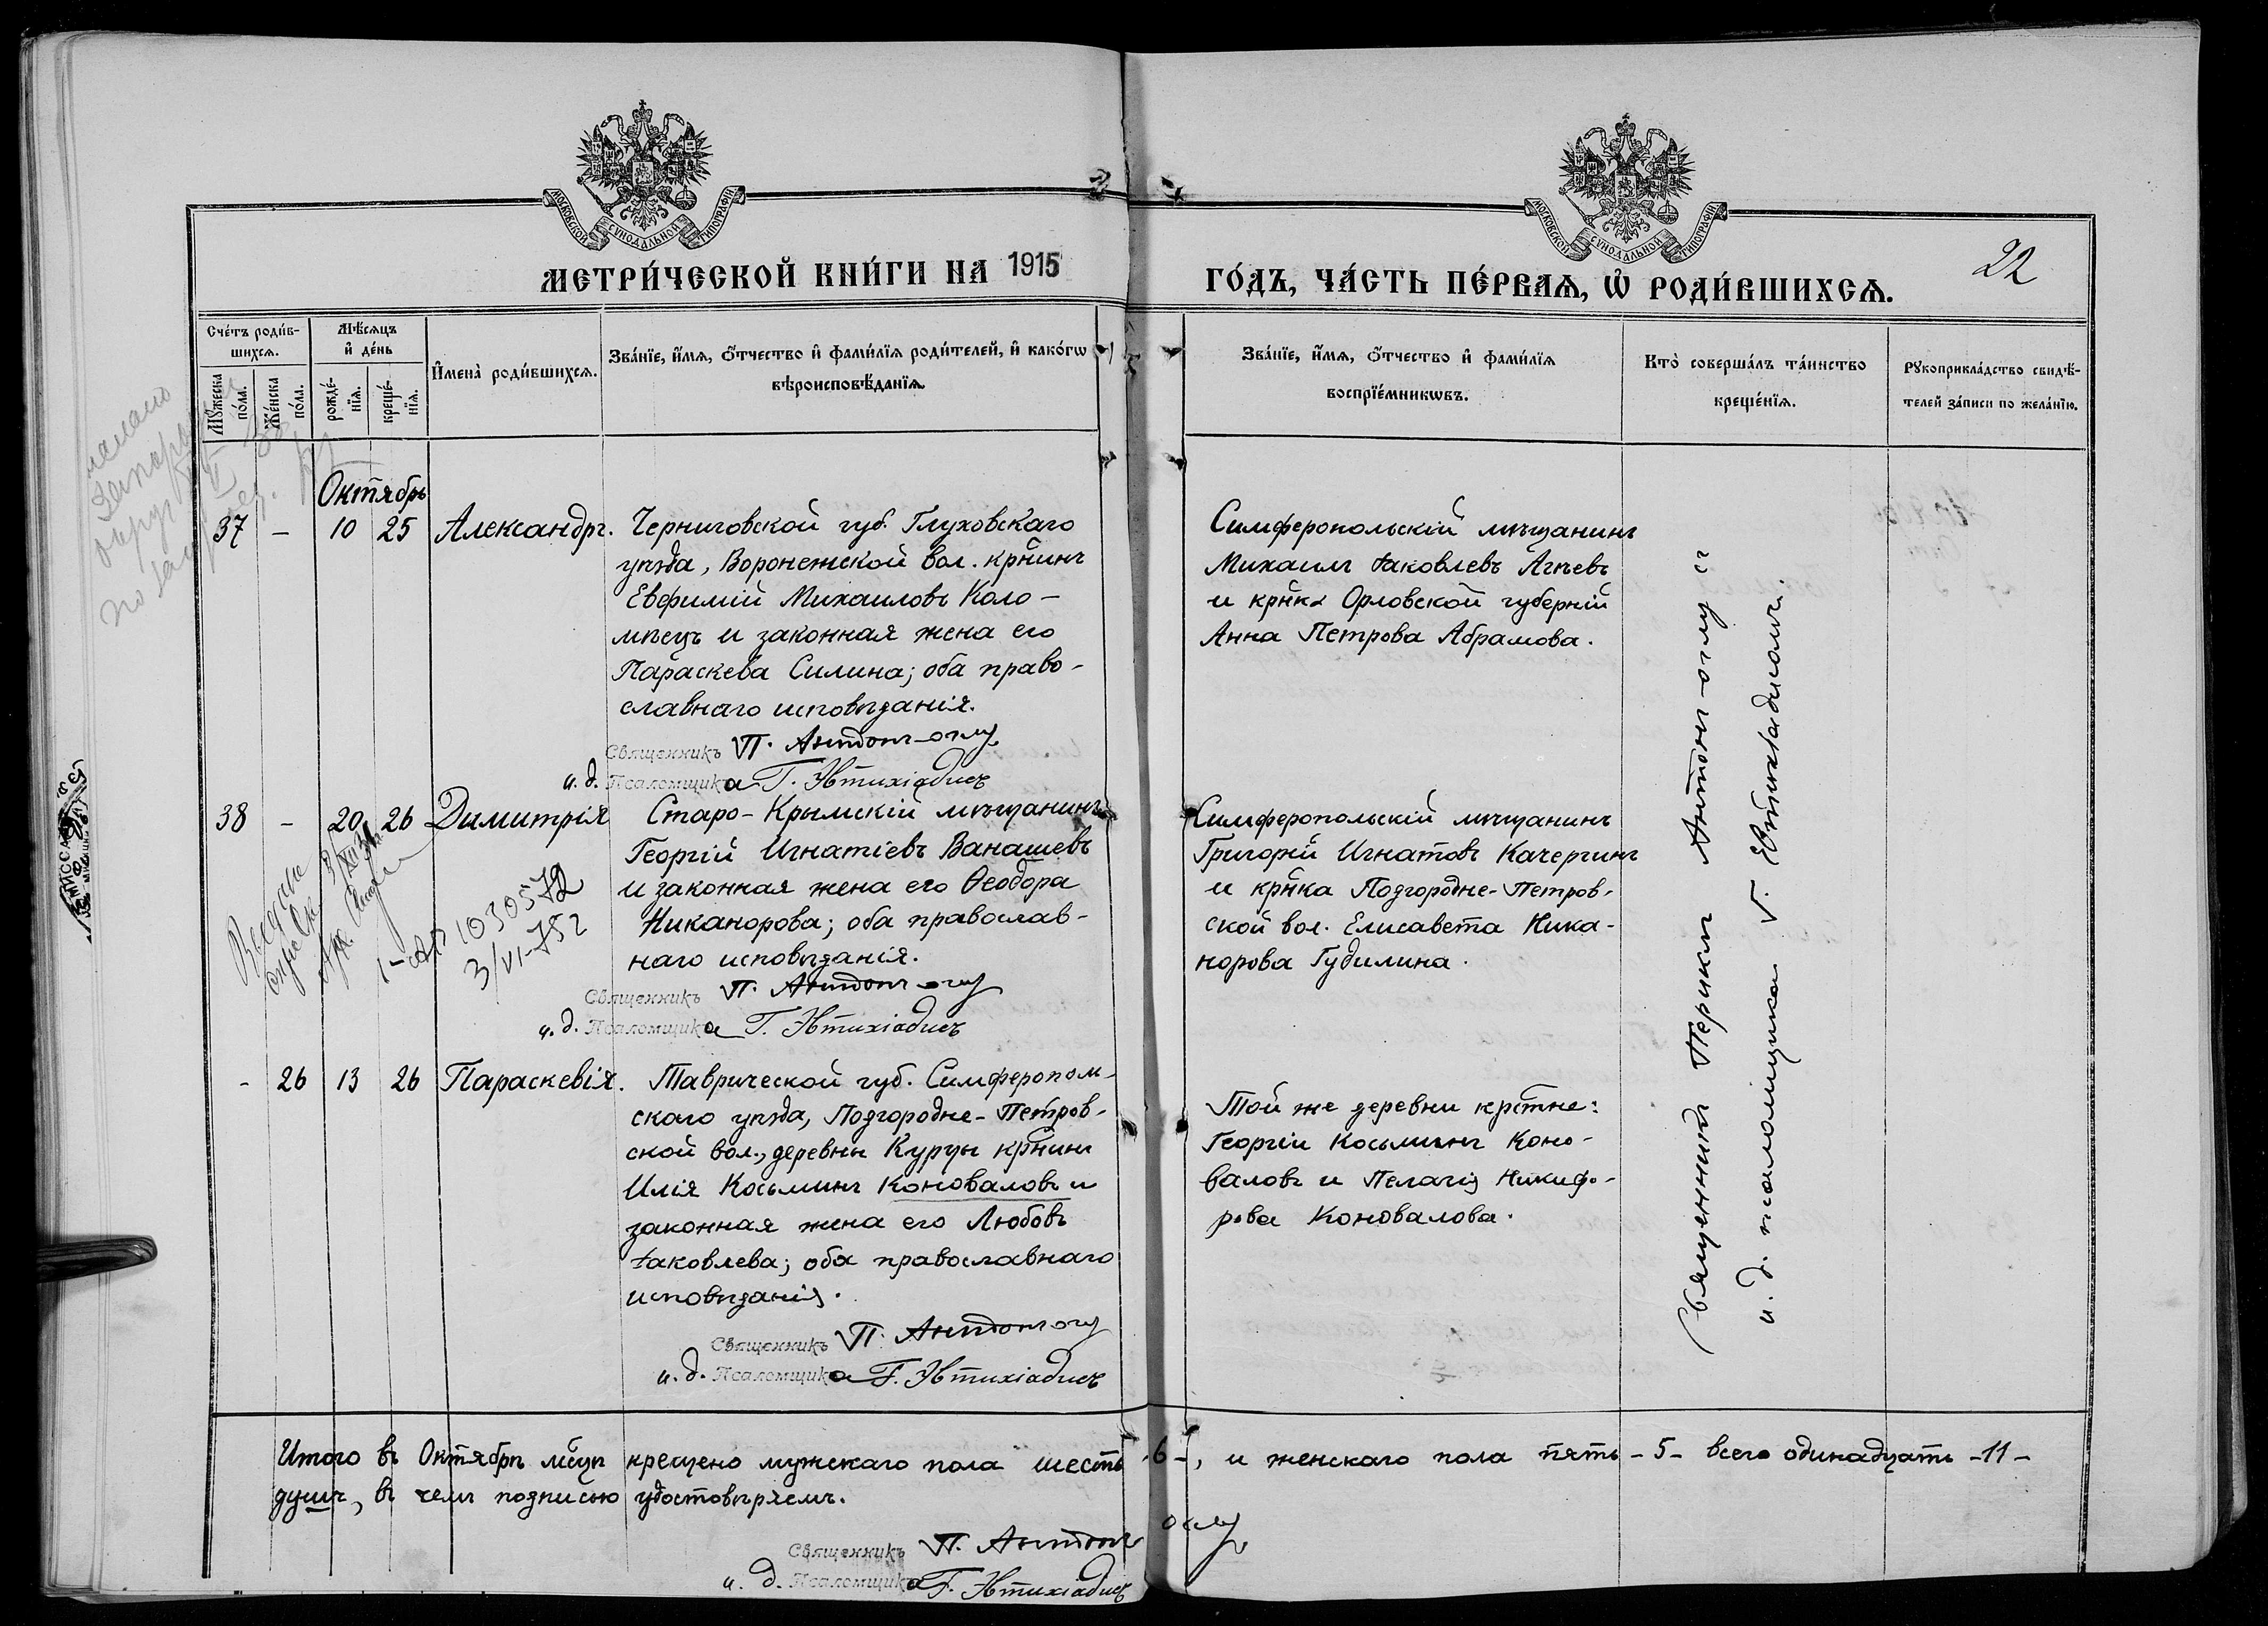 МОСКОВСКОЙ СѴНОДАЛЬНОЙ ТИПОГРАФІИ
МОСКОВСКОЙ СѴНОДАЛЬНОЙ ТИПОГРАФІИ
МЕТРИ́ЧЕСКОЙ КНИ́ГИ НА 1915
ГО́ДЪ, ЧА́СТЬ ПЕ́РВАѦ, Ѡ҆ РОДИ́ВШИХСѦ.
22
Сче́тъ роди́в-
шихсѧ.
Мꙋ́жеска
по́ла.
Же́нска
по́ла.
Мѣ́сѧцъ
и҆ де́нь
рожде́-
нїѧ.
креще́-
нїѧ.
И҆мена̀ роди́вшихсѧ.
Зва́нїе, и҆́мѧ, ѻ҆́тчество и҆ фами́лїѧ роди́телей, и҆ како́гѡ
вѣроисповѣ́данїѧ.
Зва́нїе, и҆́мѧ, ѻ҆́тчество и҆ фами́лїѧ
воспрїе́мникѡвъ.
Кто̀ соверша́лъ та́инство
креще́нїѧ.
Рꙋкоприкла́дство свидѣ́-
телей за́писи по жела́нїю.
Октябрь
37 - 10 25 Александръ.
Черниговской губ. Глуховскаго
уѣзда, Воронежской вол. крн̃инъ
Евфимій Михаиловъ Коло-
мѣецъ и законная жена его
Параскева Силина; оба право-
славнаго исповѣданія.
Священникъ П. Антонъ-оглу
и. д. Псаломщика Г. Эвтихіадисъ
Симферопольскій мѣщанинъ
Михаилъ Іаковлевъ Агѣевъ
и крн̃ка Орловской губерніи
Анна Петрова Абрамова.
38 - 20 26 Димитрія
Старо-Крымскій мѣщанинъ
Георгій Игнатіевъ Ванашевъ
и законная жена его Ѳеодора
Никанорова; оба православ-
наго исповѣданія.
Священникъ П. Антонъ-оглу
и. д. Псаломщика Г. Эвтихіадисъ
1030572
3/VI-752
Симферопольскій мѣщанинъ
Григорій Игнатовъ Качергинъ
и крн̃ка Подгородне-Петров-
ской вол. Елисавета Ника-
норова Гудилина.
- 26 13 26 Параскевія.
Таврической губ. Симферополь-
скаго уѣзда, Подгородне-Петров-
ской вол., деревни Курцы крн̃инъ
Илія Косьминъ Коноваловъ и
законная жена его Любовь
Іаковлева; оба православнаго
исповѣданія.
Священникъ П. Антонъ-оглу
и. д. Псаломщика Г. Эвтихіадисъ
Той же деревни крестне:
Георгій Косьминъ Коно-
валовъ и Пелагія Никифо-
рова Коновалова.
Священникъ Периклъ Антонъ-оглу съ
и. д. псаломщика Г. Эвтихіадисомъ.
Итого въ Октябрѣ мсцѣ крещено мужскаго пола шесть -6-, и женскаго пола пять -5- всего одинадцать -11-
душъ, въ чемъ подписью удостовѣряемъ.
Священникъ П. Антонъ оглу
и. д. Псаломщика Г. Эвтихіадисъ